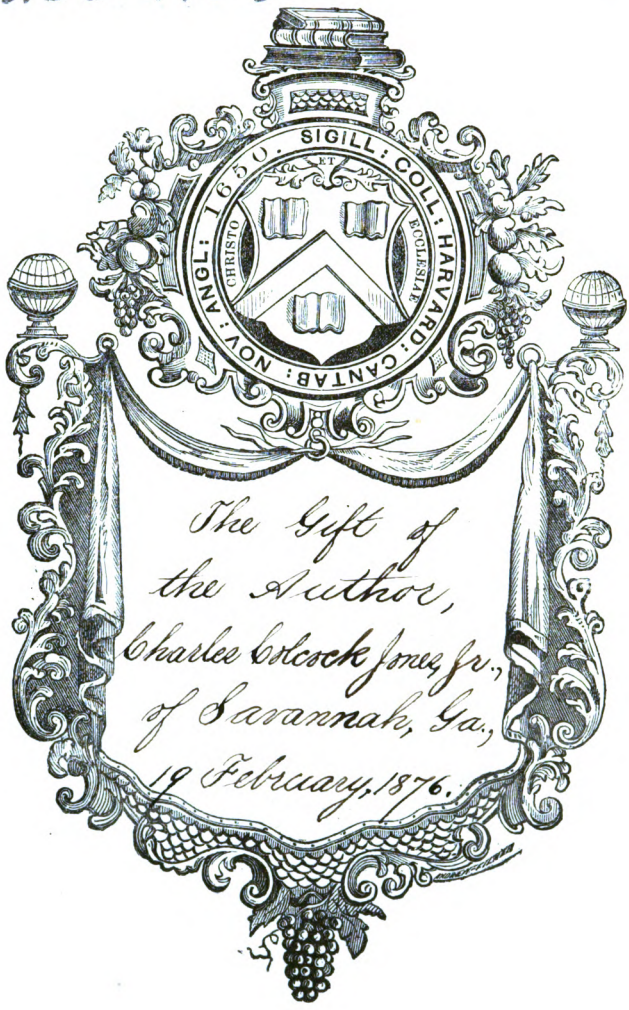 SIGILL: COLL: HARVARD: CANTAB: NOV: ANGL: 1650.
CHRISTO
ET
ECCLESIAE
The Gift of
the Author,
Charles Colcock Jones, Jr.,
of Savannah, Ga.,
19 February, 1876.